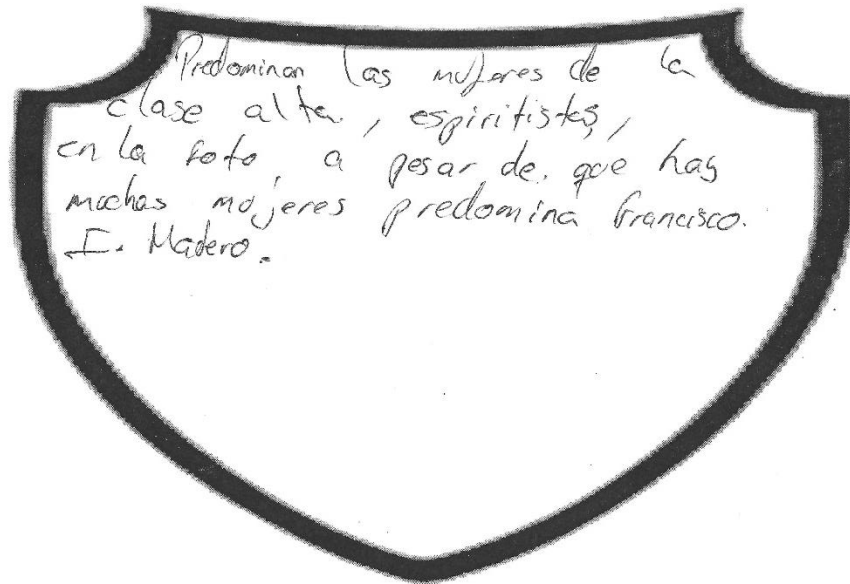 Predominan las mujeres de la
clase alta, espiritistas,
en la foto, a pesar de que hay
muchas mujeres predomina Francisco.
I. Madero.